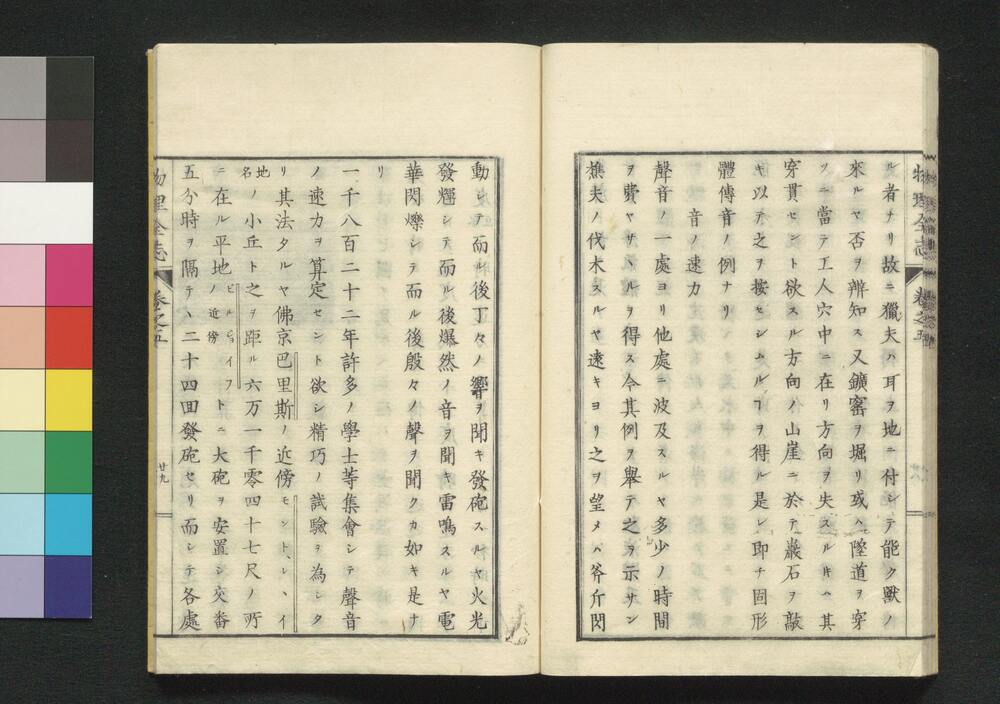 ル者ナリ故ニ獵夫ハ耳ヲ地ニ付シテ能ク獸ノ
來ルヤ否ヲ辨知ス又鑛窑ヲ堀リ或ハ隧道ヲ穿
ツニ當テ工人穴中ニ在リ方向ヲ失スル𪜈ハ其
穿貫セント欲スル方向ノ山崖ニ於テ巖石ヲ敲
キ以テ之ヲ按セシムルヿヲ得ル是レ即チ固形
體傳音ノ例ナリ
音ノ速力
聲音ノ一處ヨリ他處ニ波及スルヤ多少ノ時間
ヲ費ヤサヽルヲ得ス今其例ヲ舉テ之ヲ示サン
樵夫ノ伐木スルヤ遠キヨリ之ヲ望メハ斧斤閃
動シテ而ル後丁々ノ響ヲ聞キ發砲スルヤ火光
發輝シテ而ル後爆然ノ音ヲ聞キ雷鳴スルヤ電
華閃爍シテ而ル後殷々ノ聲ヲ聞クカ如キ是ナ
リ
一千八百二十二年許多ノ學士等集會シテ聲音
ノ速力ヲ算定セント欲シ精巧ノ試驗ヲ為シタ
リ其法タルヤ佛京巴里斯ノ近傍モントレヽイ
地名ノ小丘ト之ヲ距ル六万一千零四十七尺ノ所
ニ在ル平地ノ近傍トニ大砲ヲ安置シ交番
五分時ヲ隔テヽ二十四回發砲セリ而シテ各處
物理全志
卷之五
廿九